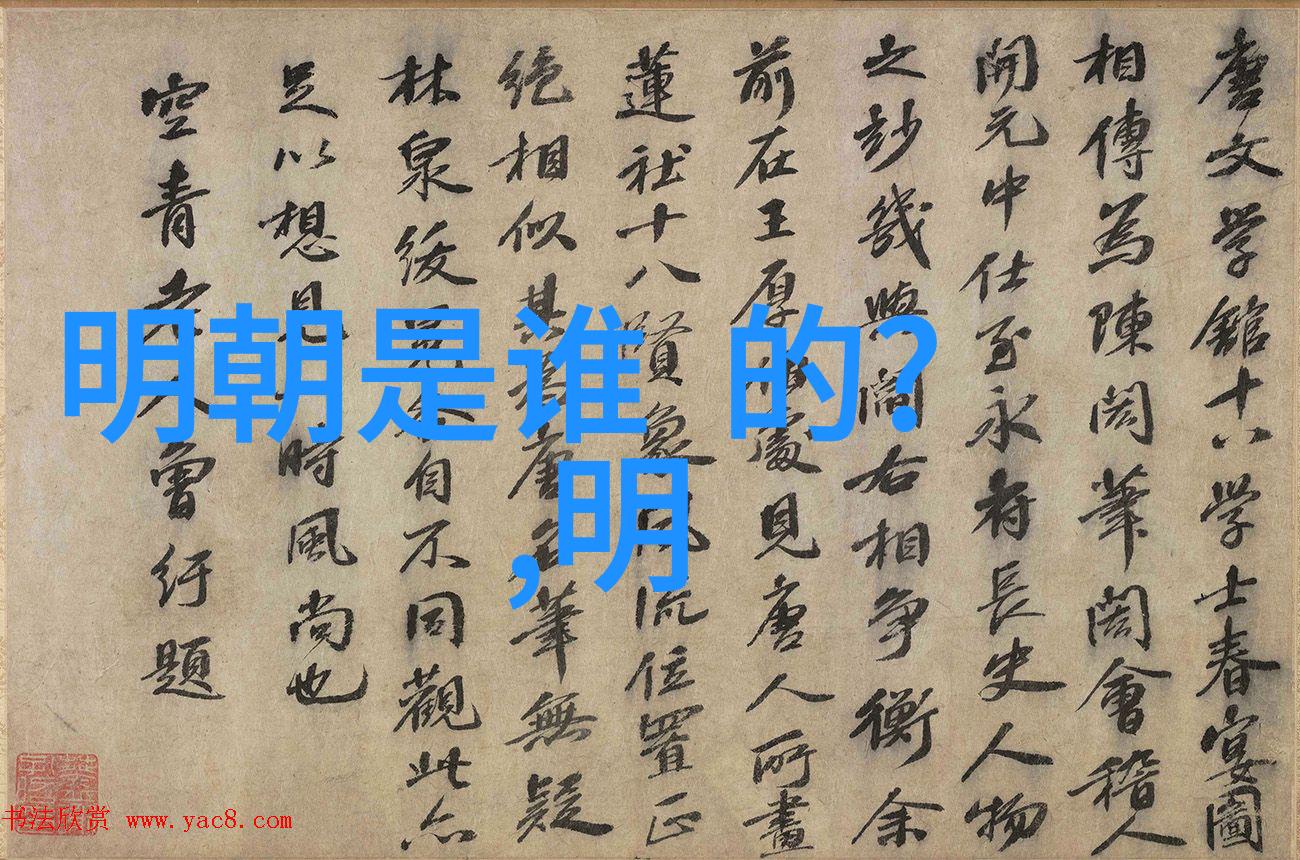 唐文学館十八学士春宴圖
相傳為陳閎筆閎會稽人
開元中仕至永府長史人物
之妙幾與閻右相争衡余
前在王厚處見唐人所畫
蓮社十八賢象風流位置正
绝相似其為唐名筆無疑
林泉自不同觀此亦
足以想見時風尚也
空青老人曾紆題
明朝是谁 的?
,明
书法欣赏 www.yac8.com